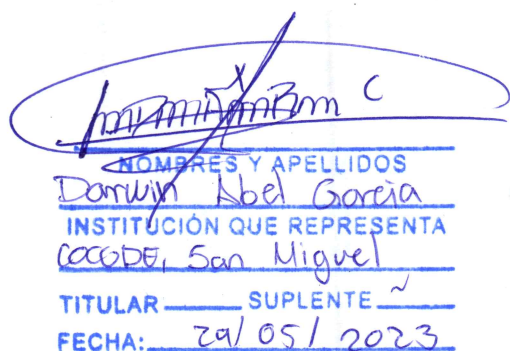 NOMBRES Y APELLIDOS
Darwin Abel Garcia
INSTITUCIÓN QUE REPRESENTA
COCODE, San Miguel
TITULAR SUPLENTE
FECHA: 29/05/2023